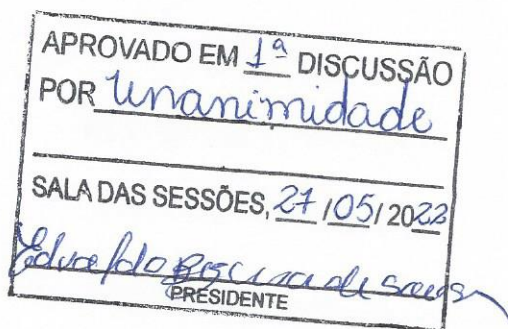 APROVADO EM 1ª DISCUSSÃO
POR Unanimidade
SALA DAS SESSÕES, 27/05/2022
Edvaldo de Sousa
PRESIDENTE